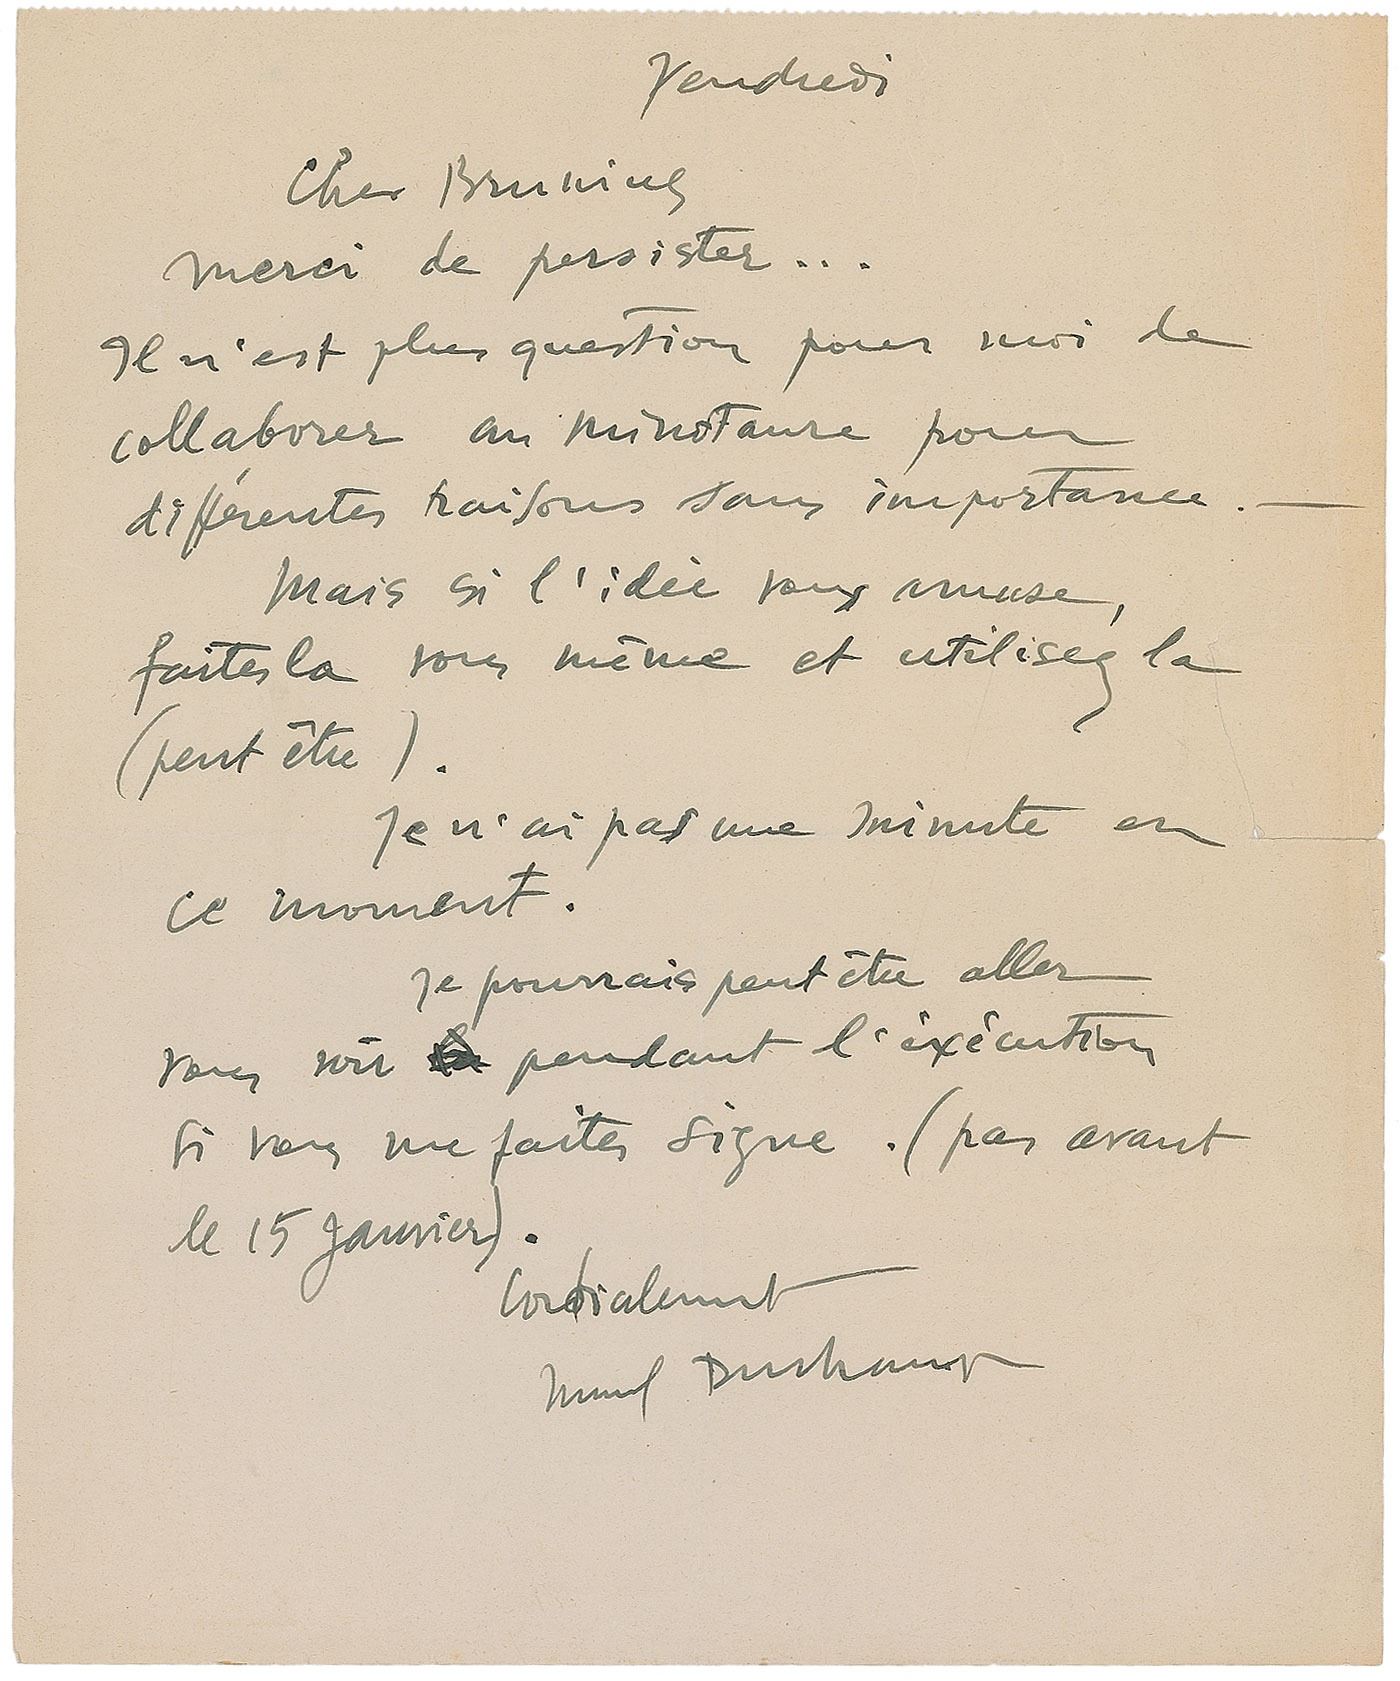 Vendredi
Cher Bruning
merci de persister...
Il n'est plus question pour moi de
collaborer au minotaure pour
différentes raisons sans importance. —
Mais si l'idée vous amuse,
faites la vous même et utilisez la
(peut être).
Je n'ai pas une minute en
ce moment.
Je pourrais peut être aller
vous voir pendant l'éxécution
si vous me faites signe. (pas avant
le 15 Janvier).
Cordialement
Marcel Duchamp